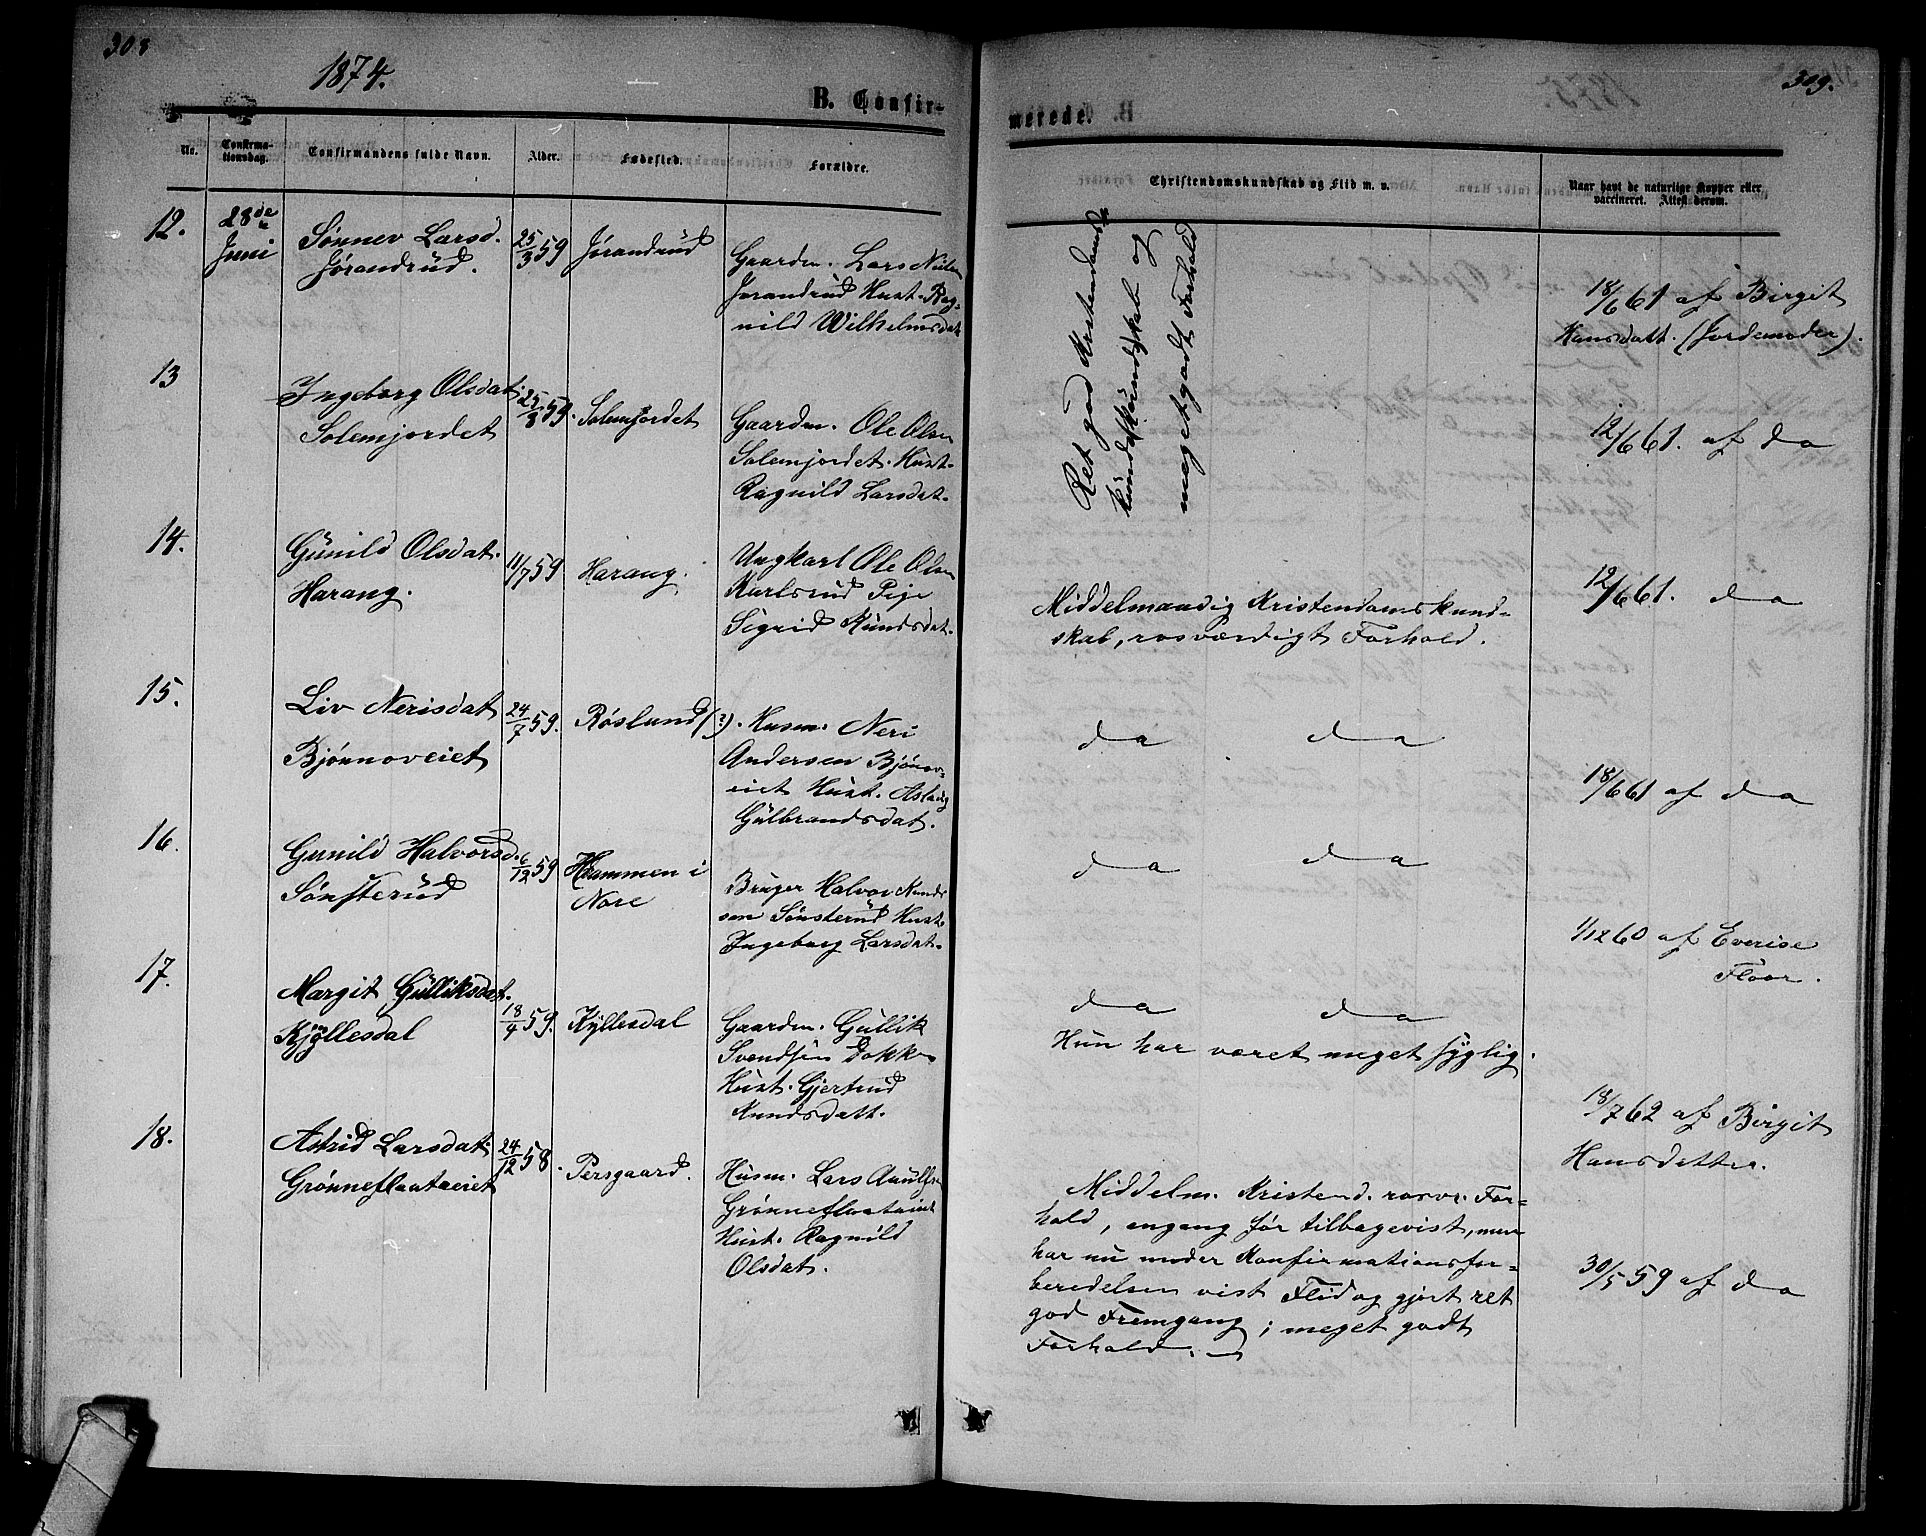 308
1874.
B. Confir-
No.
Confirma-
tionsdag.
Confirmandens fulde Navn.
Alder.
Fødested.
Forældre.
12.
28de
Juni
Sønnev Larsd.
Jørandrud.
25/3 59
Jørandrud
Gaardm. Lars Nils
Jørandrud Hust. Rag-
nild Wilhelmsdat
13
Ingeborg Olsdat.
Solemjordet
25/3 59.
Solemjordet
Gaardm. Ole Olsen
Solemjordet. Hust.
Ragnild Larsdat.
14.
Gunild Olsdat.
Harang.
11/7 59
Harang.
Ungkarl Ole Olsen
Karlsrud Pige
Sigrid Knudsdat.
15.
Liv Nerisdat
Bjønnoveiet
24/7 59.
Røslund (?).
Husm. Neri
Andersen Bjønov-
eiet Hust. Aslaug
Gulbrandsdat.
16.
Gunild Halvorsd.
Sønsterud
6/12 59
Haammen i
Nore
Bruger Halvor Knud-
sen Sønsterud Hust.
Ingeborg Larsdat.
17.
Margit Gulliksdat.
Kjøllesdal
18/4 59.
Kyllesdal
Gaardm. Gullik
Svendsen Dokken
Hust. Gjertrud
Knudsdatt.
18.
Astrid Larsdat.
Grønneflaataeiet
24/12 58.
Persgaard.
Husm. Lars
Grønneflaataeiet
Hust. Ragnild
Olsdat.
309.
merede.
Christendomskundskab og Flid m. v.
Naar havt de naturlige Kopper eller
vaccineret. Attest derom.
Ret god Kristendoms-
kundskab og
meget godt Forhold
18/6 61 af Birgit
Hansdatt. (Jordemoder).
12/6 61. af do
Middelmaadig Kristendomskund-
skab, rosværdigt Forhold.
12/6 61. do
do do
18/6 61 af do
do do
1/12 60 af Everise
Floor.
do do
Hun har været meget syglig.
18/7 62 af Birgit
Hansdetter.
Middelm. Kristend. rosv. For-
hold, engang før tilbagevist, men
har nu under Konfirmationsfor-
beredelsen vist Flid og gjort ret
god Fremgang; meget godt
Forhold.
30/5 59 af do